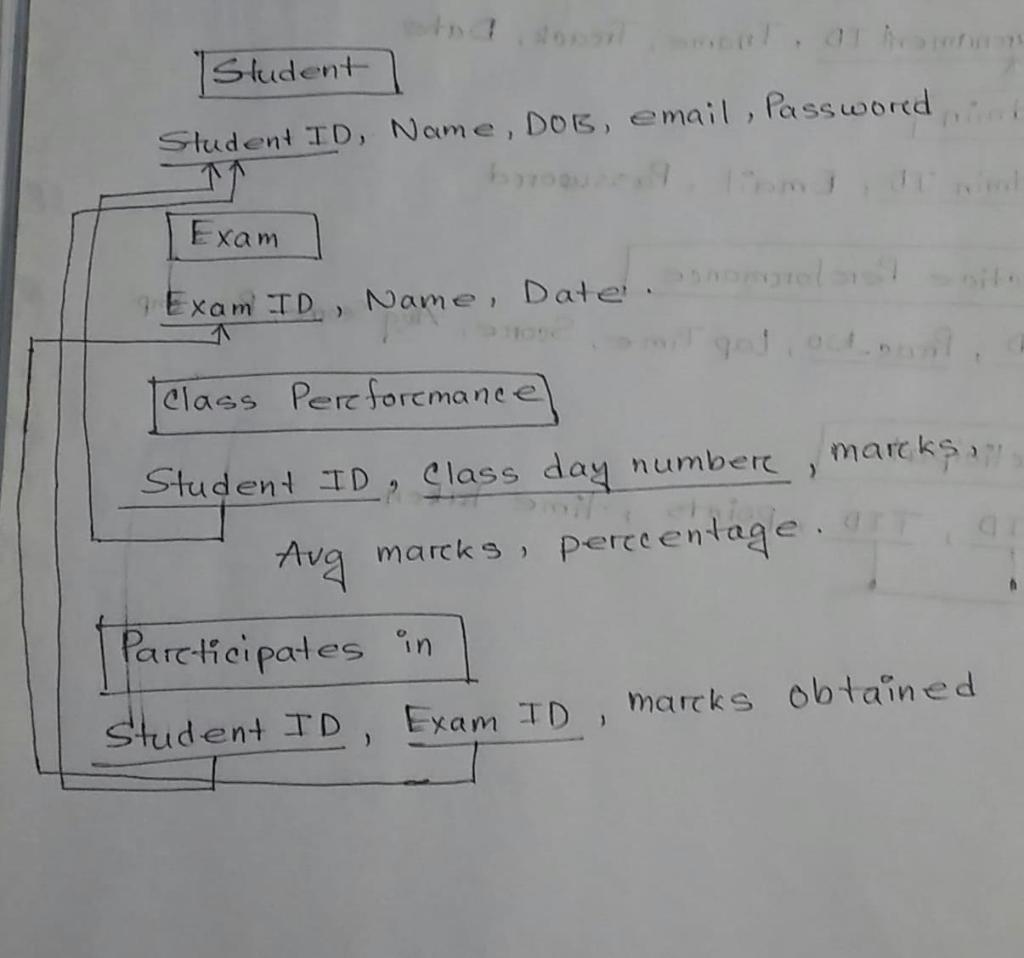 Student
Student ID, Name, DOB, email, Password
Exam
Exam ID, Name, Date.
Class Performance
Student ID, Class day number, marks,
Avg marks, percentage.
Participates in
Student ID, Exam ID, marks obtained